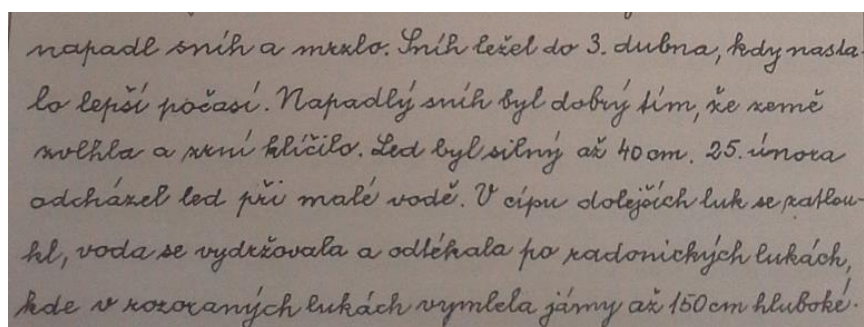 napadl sníh a mrzlo. Sníh ležel do 3. dubna, kdy nasta-
lo lepší počasí. Napadlý sníh byl dobrý tím, že země
zvlhla a zrní klíčilo. Led byl silný až 40 cm. 25. února
odcházel led při malé vodě. V cípu dolejších luk se zatlou-
kl, voda se vydržovala a odtékala po radonických lukách,
kde v rozoraných lukách vymlela jámy až 150 cm hluboké.